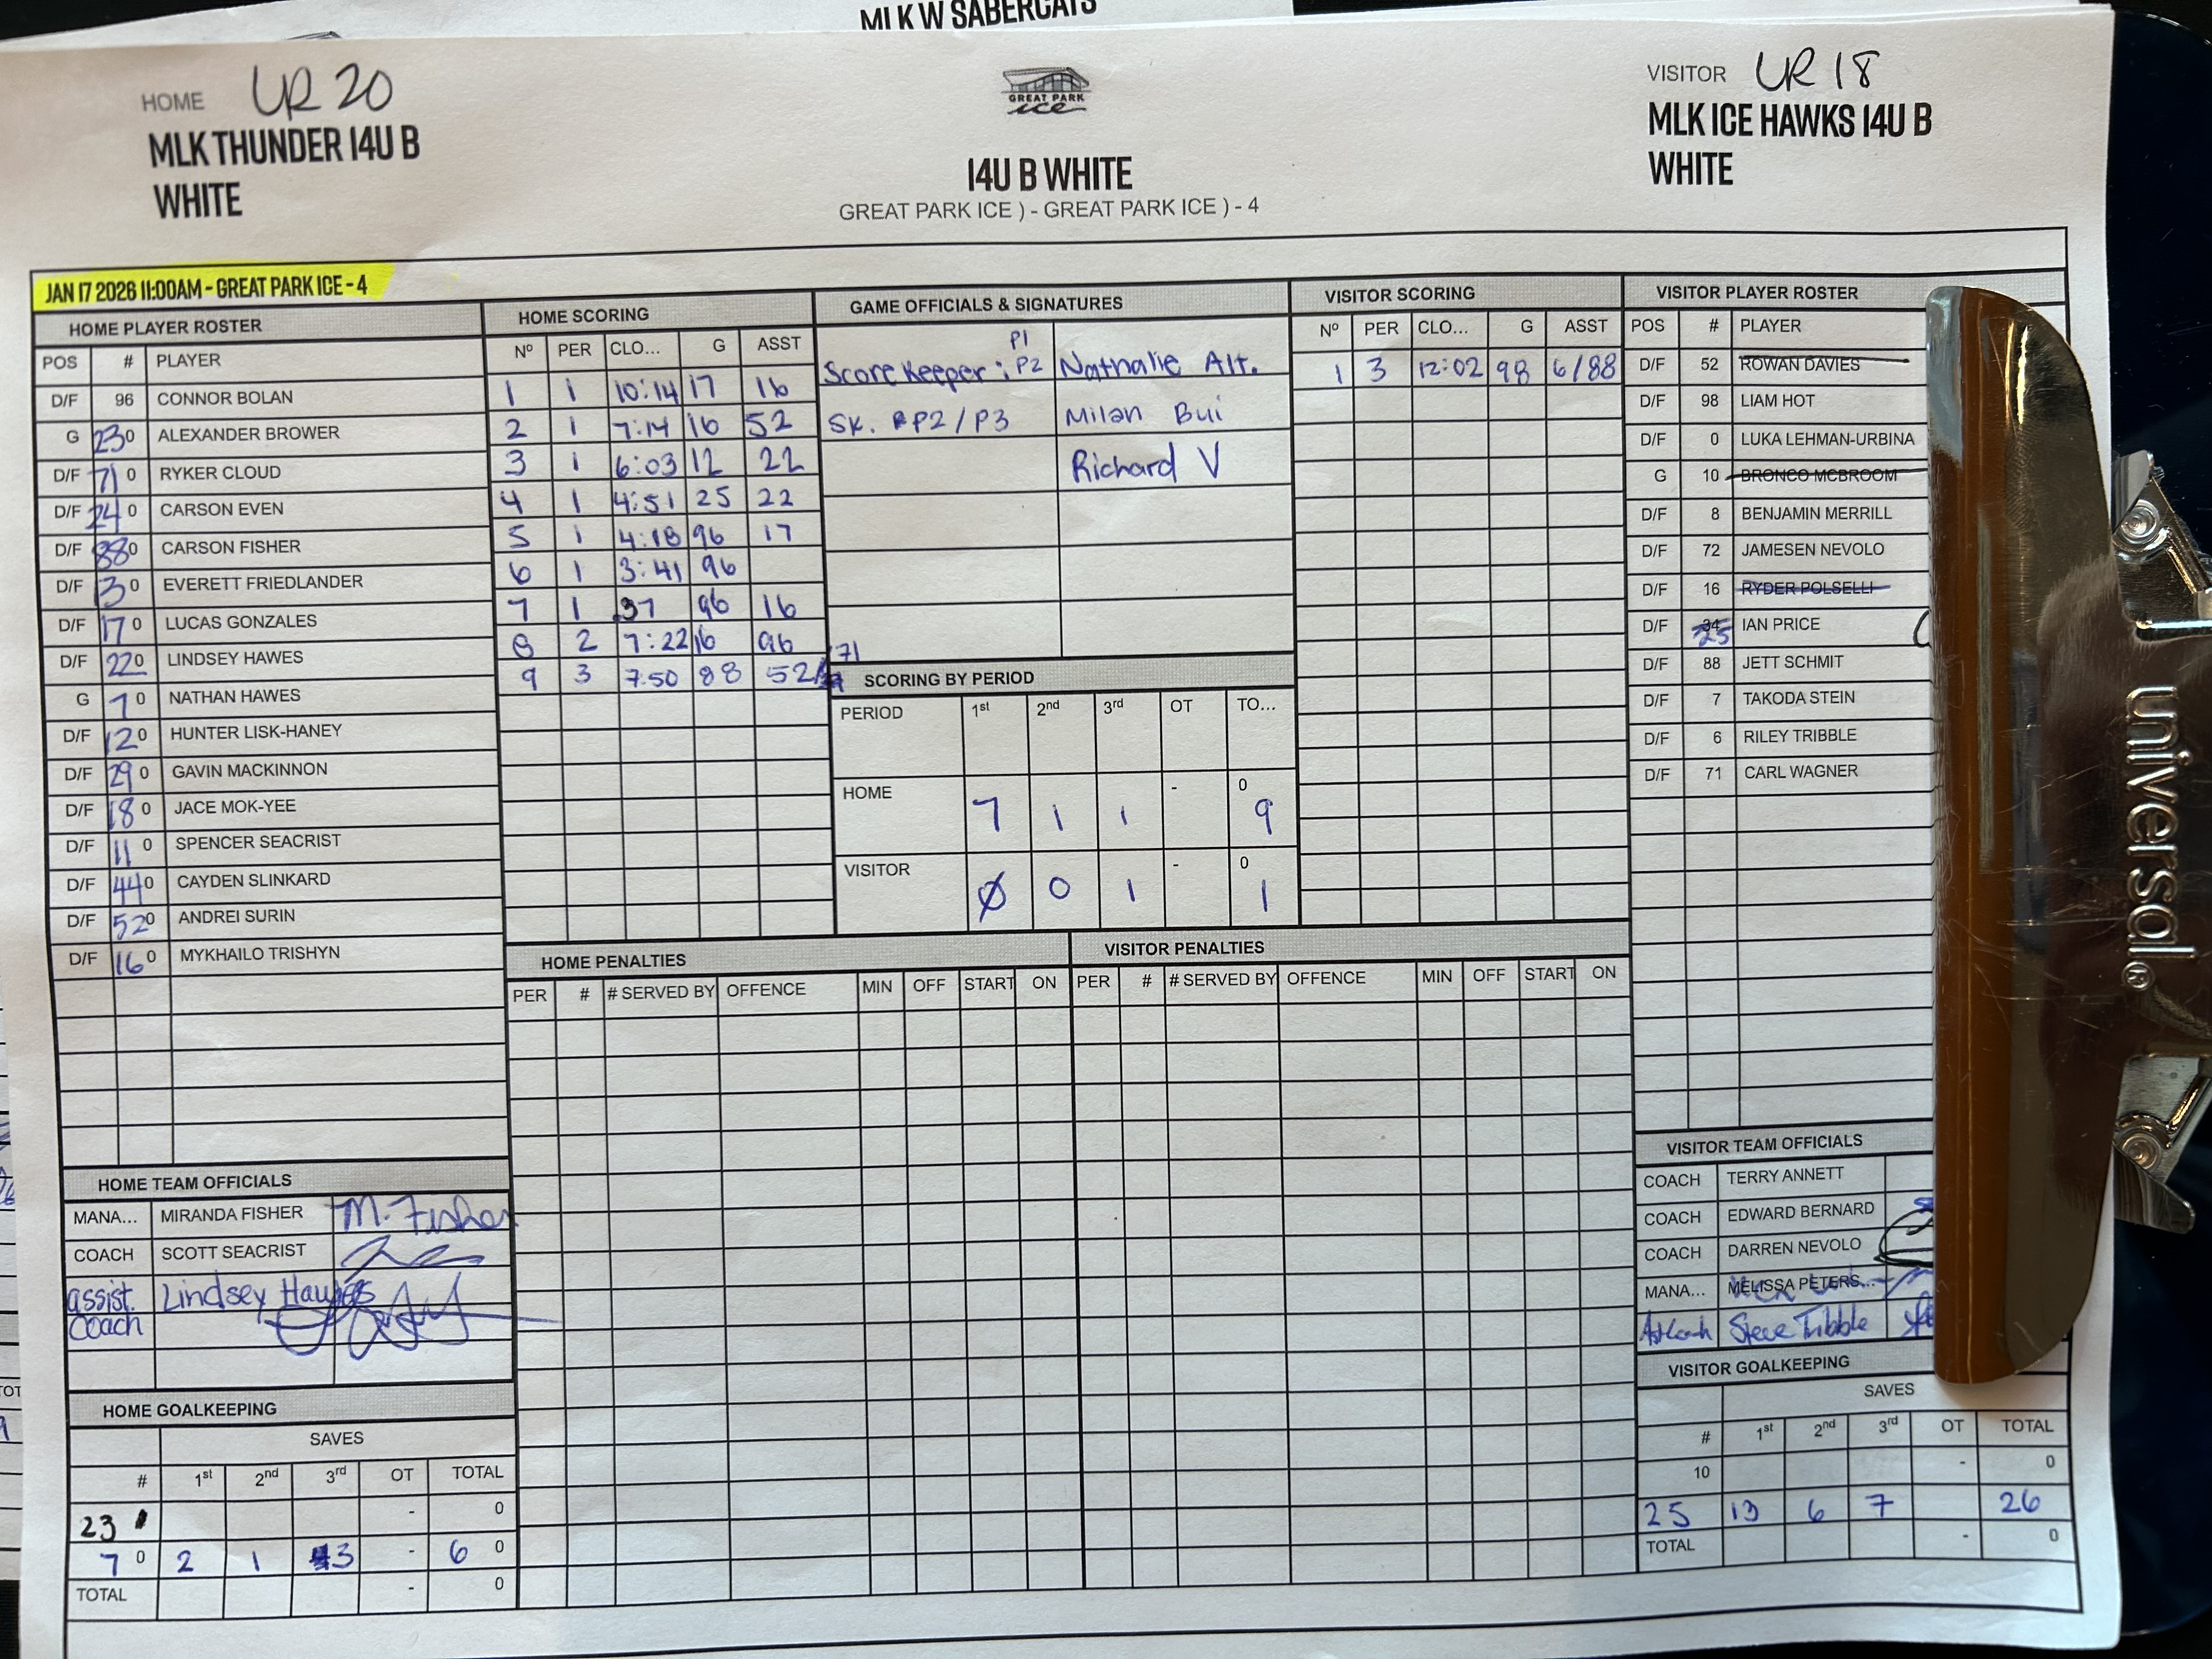 MLK W SABERCATS
HOME UR 20
MLK THUNDER 14U B
WHITE
GREAT PARK
ice
14U B WHITE
GREAT PARK ICE ) - GREAT PARK ICE ) - 4
VISITOR UR 18
MLK ICE HAWKS 14U B
WHITE
JAN 17 2026 11:00AM - GREAT PARK ICE - 4
HOME PLAYER ROSTER
POS # PLAYER
D/F 96 CONNOR BOLAN
G 23 0 ALEXANDER BROWER
D/F 71 0 RYKER CLOUD
D/F 24 0 CARSON EVEN
D/F 88 0 CARSON FISHER
D/F 13 0 EVERETT FRIEDLANDER
D/F 17 0 LUCAS GONZALES
D/F 22 0 LINDSEY HAWES
G 7 0 NATHAN HAWES
D/F 12 0 HUNTER LISK-HANEY
D/F 29 0 GAVIN MACKINNON
D/F 18 0 JACE MOK-YEE
D/F 11 0 SPENCER SEACRIST
D/F 44 0 CAYDEN SLINKARD
D/F 52 0 ANDREI SURIN
D/F 16 0 MYKHAILO TRISHYN
HOME SCORING
Nº PER CLO... G ASST
1 1 10:14 17 16
2 1 7:14 16 52
3 1 6:03 12 22
4 1 4:51 25 22
5 1 4:18 96 17
6 1 3:41 96
7 1 37 96 16
8 2 7:22 16 96
9 3 7:50 88 52/71
GAME OFFICIALS & SIGNATURES
P1
Score Keeper : P2 Nathalie Alt.
SK. P2/P3 Milan Bui
Richard V
SCORING BY PERIOD
PERIOD 1st 2nd 3rd OT TO...
HOME 7 1 1 - 0 9
VISITOR Ø 0 1 - 0 1
VISITOR SCORING
Nº PER CLO... G ASST
1 3 12:02 98 6/88
VISITOR PLAYER ROSTER
POS # PLAYER
D/F 52 ROWAN DAVIES
D/F 98 LIAM HOT
D/F 0 LUKA LEHMAN-URBINA
G 10 BRONCO MCBROOM
D/F 8 BENJAMIN MERRILL
D/F 72 JAMESEN NEVOLO
D/F 16 RYDER POLSELLI
D/F 34 25 IAN PRICE
D/F 88 JETT SCHMIT
D/F 7 TAKODA STEIN
D/F 6 RILEY TRIBBLE
D/F 71 CARL WAGNER
HOME PENALTIES
PER # # SERVED BY OFFENCE MIN OFF START ON
VISITOR PENALTIES
PER # # SERVED BY OFFENCE MIN OFF START ON
HOME TEAM OFFICIALS
MANA... MIRANDA FISHER M. Fisher
COACH SCOTT SEACRIST
assist. Coach Lindsey Hawes
HOME GOALKEEPING
SAVES
# 1st 2nd 3rd OT TOTAL
23 - 0
7 0 2 1 3 - 6 0
TOTAL - 0
VISITOR TEAM OFFICIALS
COACH TERRY ANNETT
COACH EDWARD BERNARD
COACH DARREN NEVOLO
MANA... MELISSA PETERS...
Steve Tribble
VISITOR GOALKEEPING
SAVES
# 1st 2nd 3rd OT TOTAL
10 - 0
25 13 6 7 26
TOTAL - 0
universal®